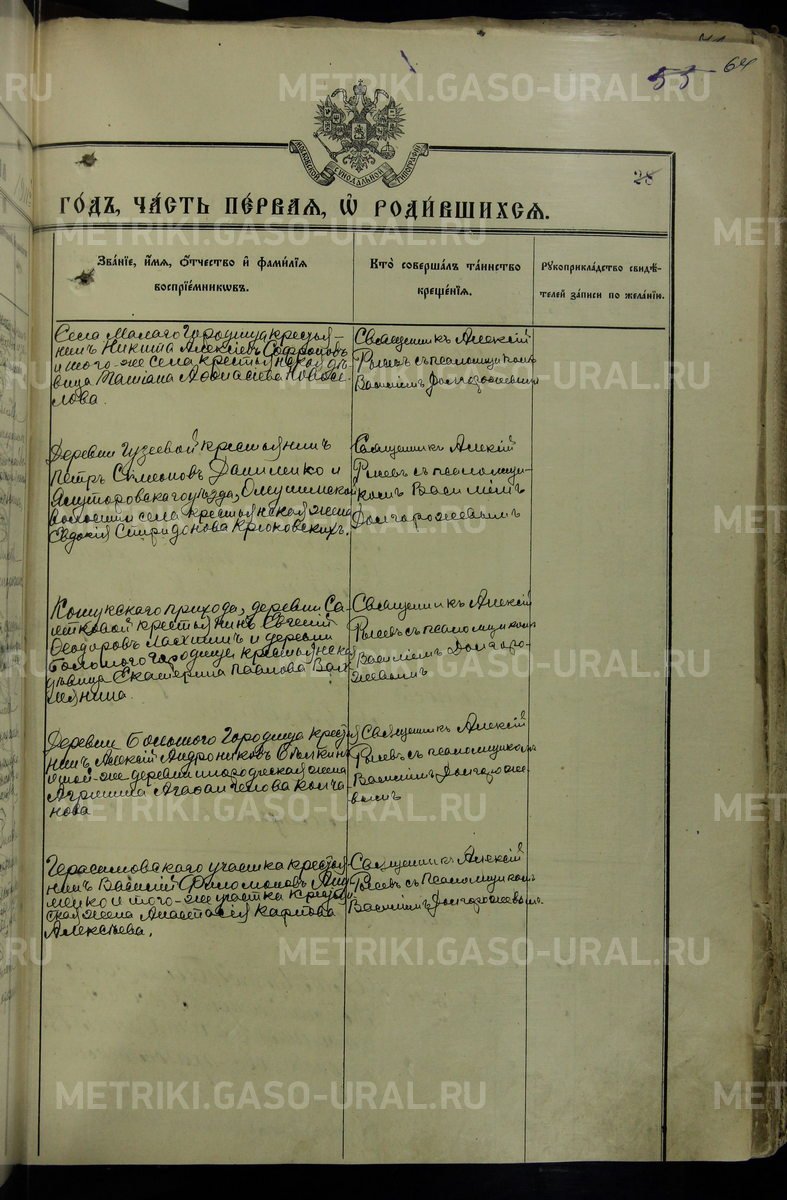 55 64
МОСКОВСКОЙ СѴНОДАЛЬНОЙ ТИПОГРАФІИ
28
ГО́ДЪ, ЧА́СТЬ ПЕ́РВАѦ, Ѡ҆ РОДИ́ВШИХСѦ.
Зва́нїе, и҆́мѧ, ѻ҆́тчество и҆ фами́лїѧ
воспрїе́мникѡвъ.
Кто̀ соверша́лъ та́инство
креще́нїѧ.
Рꙋкоприкла́дство свидѣ́-
телей за́писи по жела́нїю.
Села Малаго Городища крестья-
нинъ Никита Алексіевъ Софроновъ
и того-же села крестьянская дѣ-
вица Татіана Аѳанасіева Новосе-
лова.
Священникъ Алексій
Рычевъ съ псаломщикомъ
Василіемъ Долгорожевымъ
Деревни Гузеевой крестьянинъ
Петръ Симеоновъ Даниленко и
Ялуторовскаго уѣзда,
волости села крестьянская жена
Евдокія Спиридонова Крюковскихъ.
Священникъ Алексій
Рычевъ съ псаломщи-
комъ Василіемъ
Долгорожевымъ
Кошукскаго прихода, деревни Са-
итковой крестьянинъ Евгеній
Ѳеодоровъ и деревни
Большого Городища крестьянская
дѣвица Екатерина Павлова
Священникъ Алексій
Рычевъ съ псаломщикомъ
Василіемъ Долгоро-
жевымъ
Деревни Большого Городища крестья
нинъ Алексій Андрониковъ
и той-же деревни крестьянская жена
Агриппина Агафангелова Колча
нова
Священникъ Алексій
Рычевъ съ псаломщикомъ
Василіемъ Долгороже-
вымъ
Герасимовскаго участка крестья
нинъ Василій Филимоновъ
менко и того-же участка крестьян
ская жена Анастасія Карпова
Алексѣева.
Священникъ Алексій
Рычевъ съ псаломщикомъ
Василіемъ Долгорожевымъ
METRIKI.GASO-URAL.RU